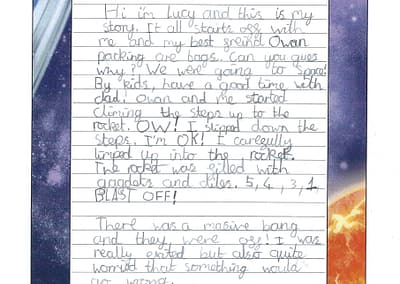 Hi im Lucy and this is my
story. It all starts off with
me and my best freind Owan
parking are bags. Can you gues
why? We were going to space!
By kids, have a good time with
dad! Owan and me started
climing the steps up to the
rocket. OW! I slipped down the
steps. I'm OK! I carefully
limped up into the rocket.
The rocket was filled with
gagdets and diles. 5, 4, 3, 1,
BLAST OFF!
There was a masive bang
and they were off! I was
really exited but also quite
worried that something would
go wrong.